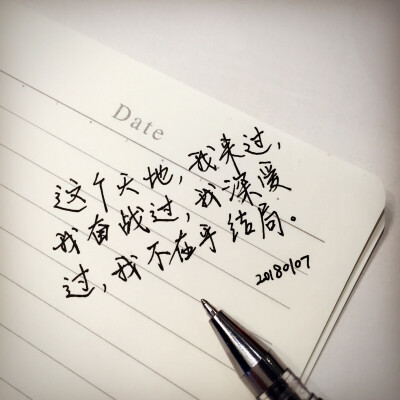 Date
这个天地，我来过，
我奋战过，我深爱
过，我不在乎结局。
20180107